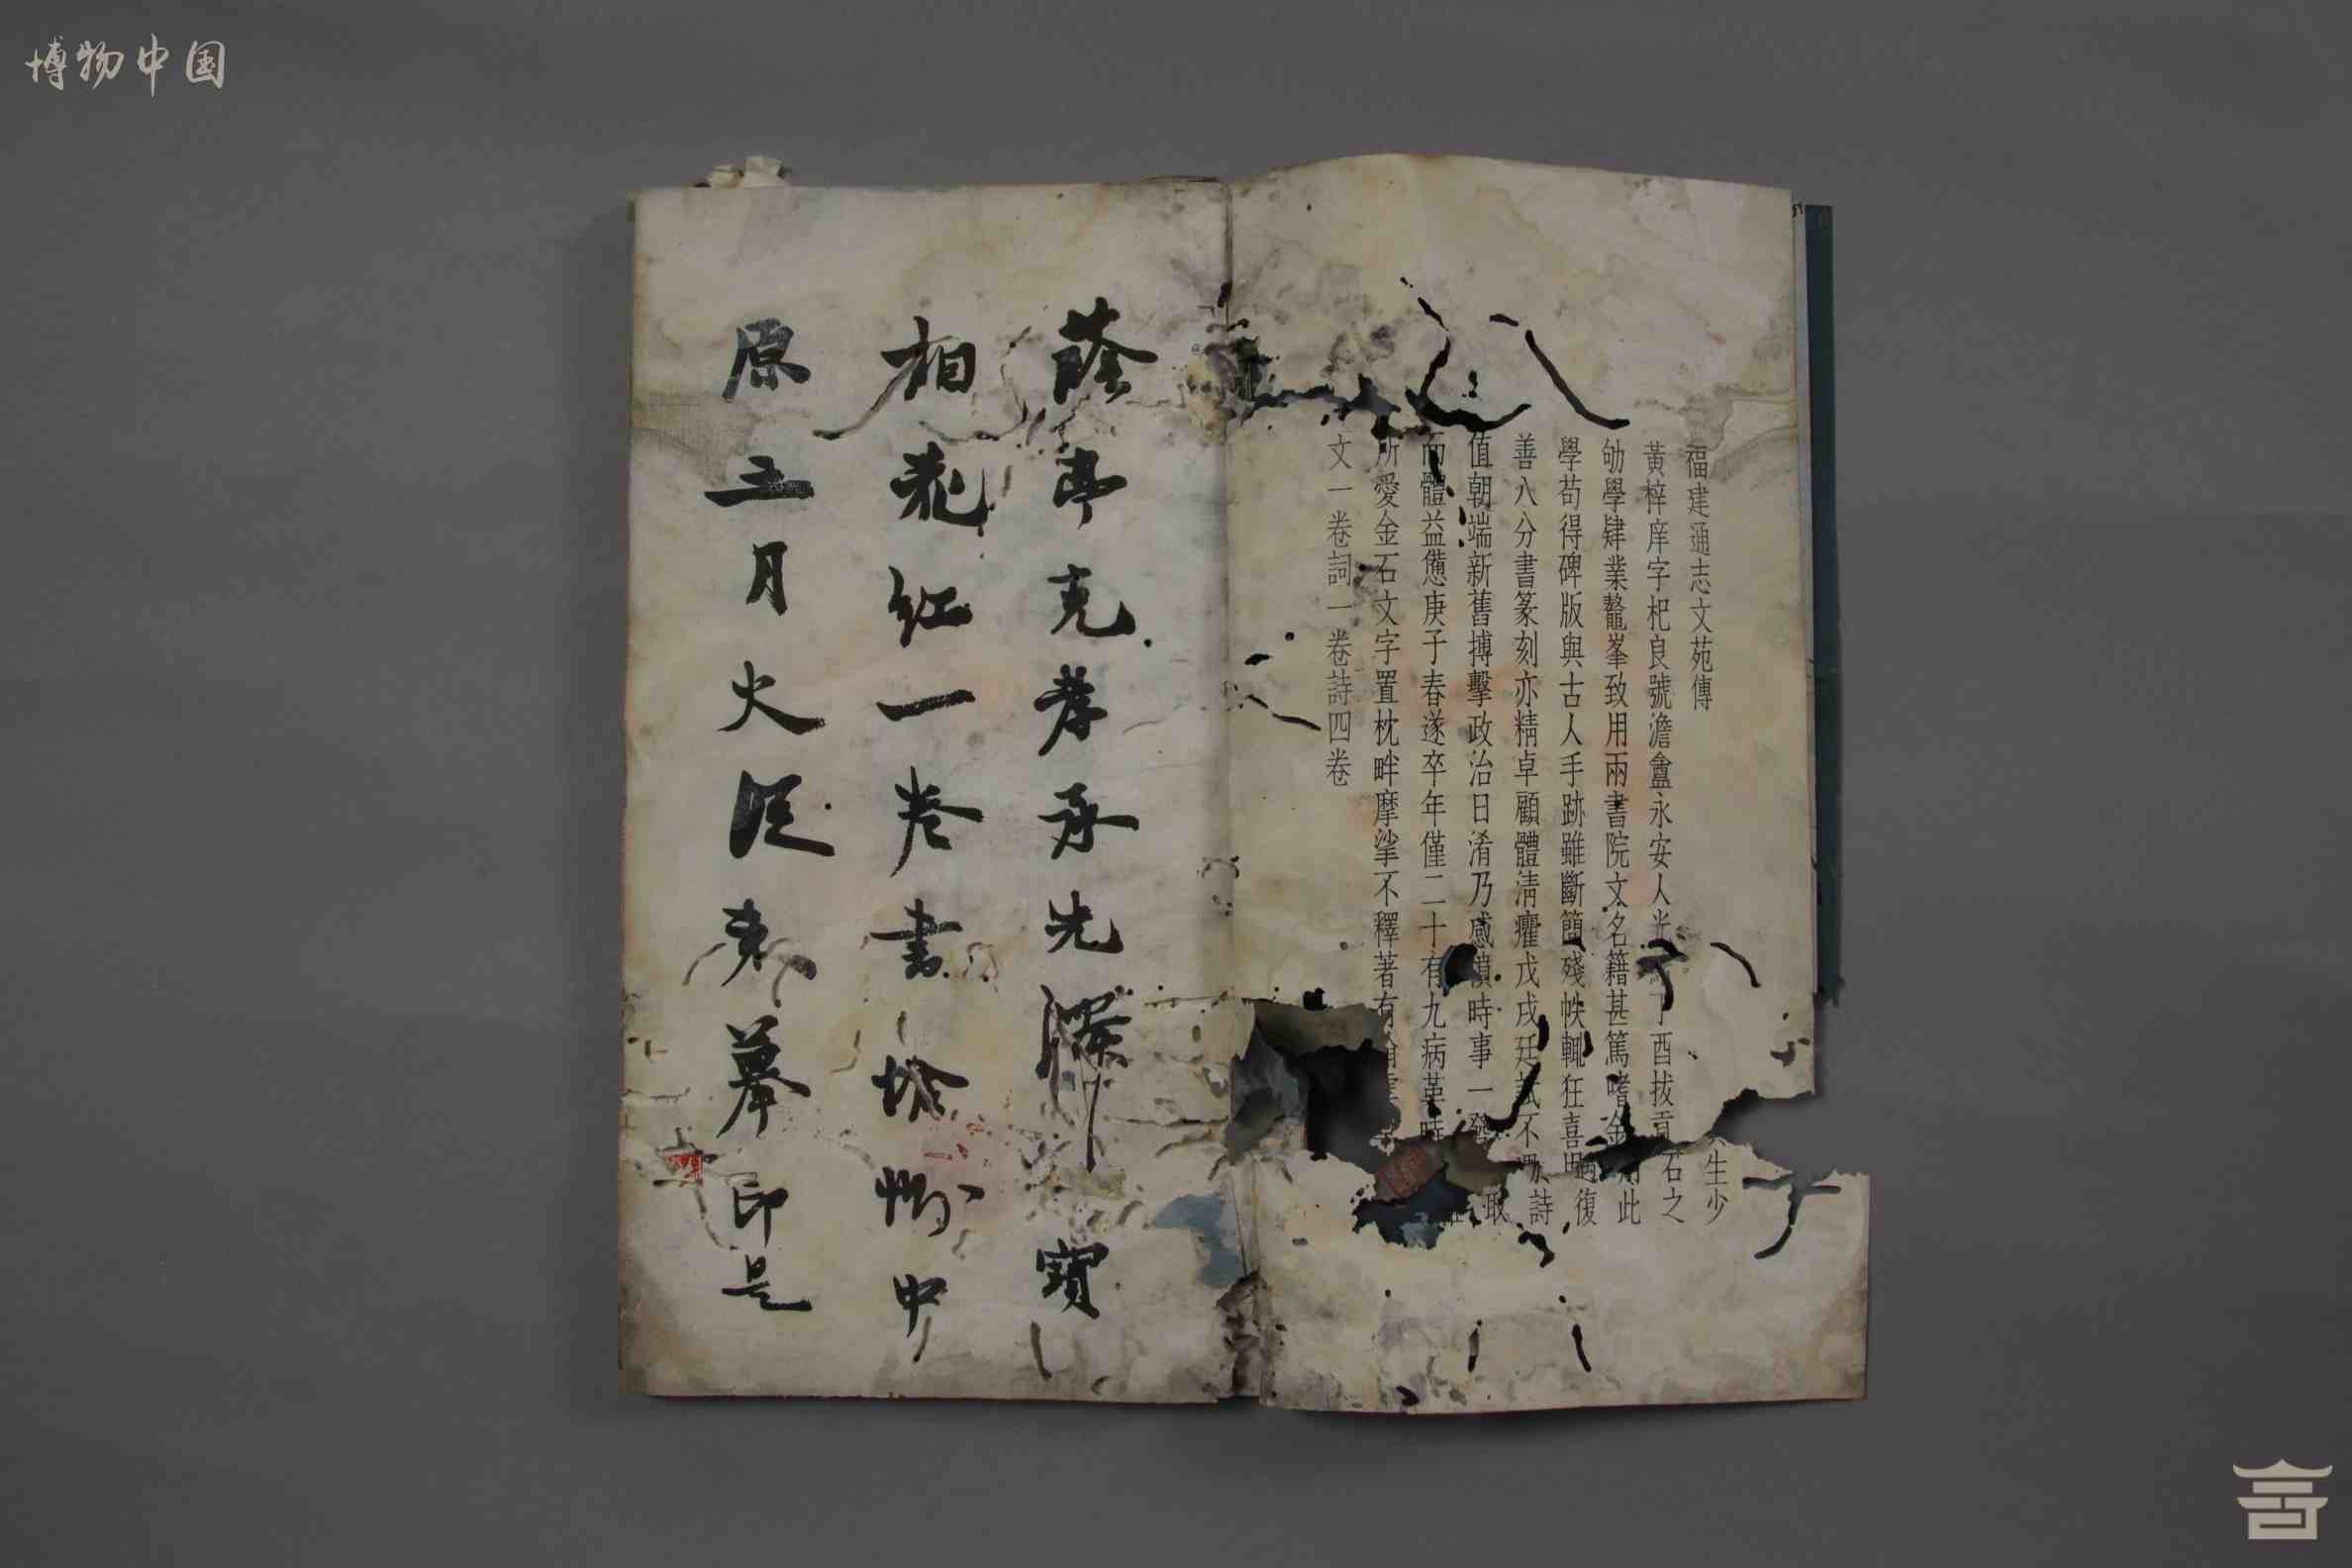 博物中国
福建通志文苑傳
黃梓庠字杞良號澹盦永安人光丁酉拔貢生少
劬學肄業鼇峯致用兩書院文名籍甚篤嗜金石之
學苟得碑版與古人手跡雖斷簡殘帙輒狂喜此
善八分書篆刻亦精卓顧體淸癯戊戌廷試不復
值朝端新舊搏擊政治日淆乃感憤時事一發詩
而體益憊庚子春遂卒年僅二十有九病革時取
所愛金石文字置枕畔摩挲不釋著有
文一卷詞一卷詩四卷
蔭亭克孝承先澤寶
相花紅一卷書塔影中
原三月火從來摹印是